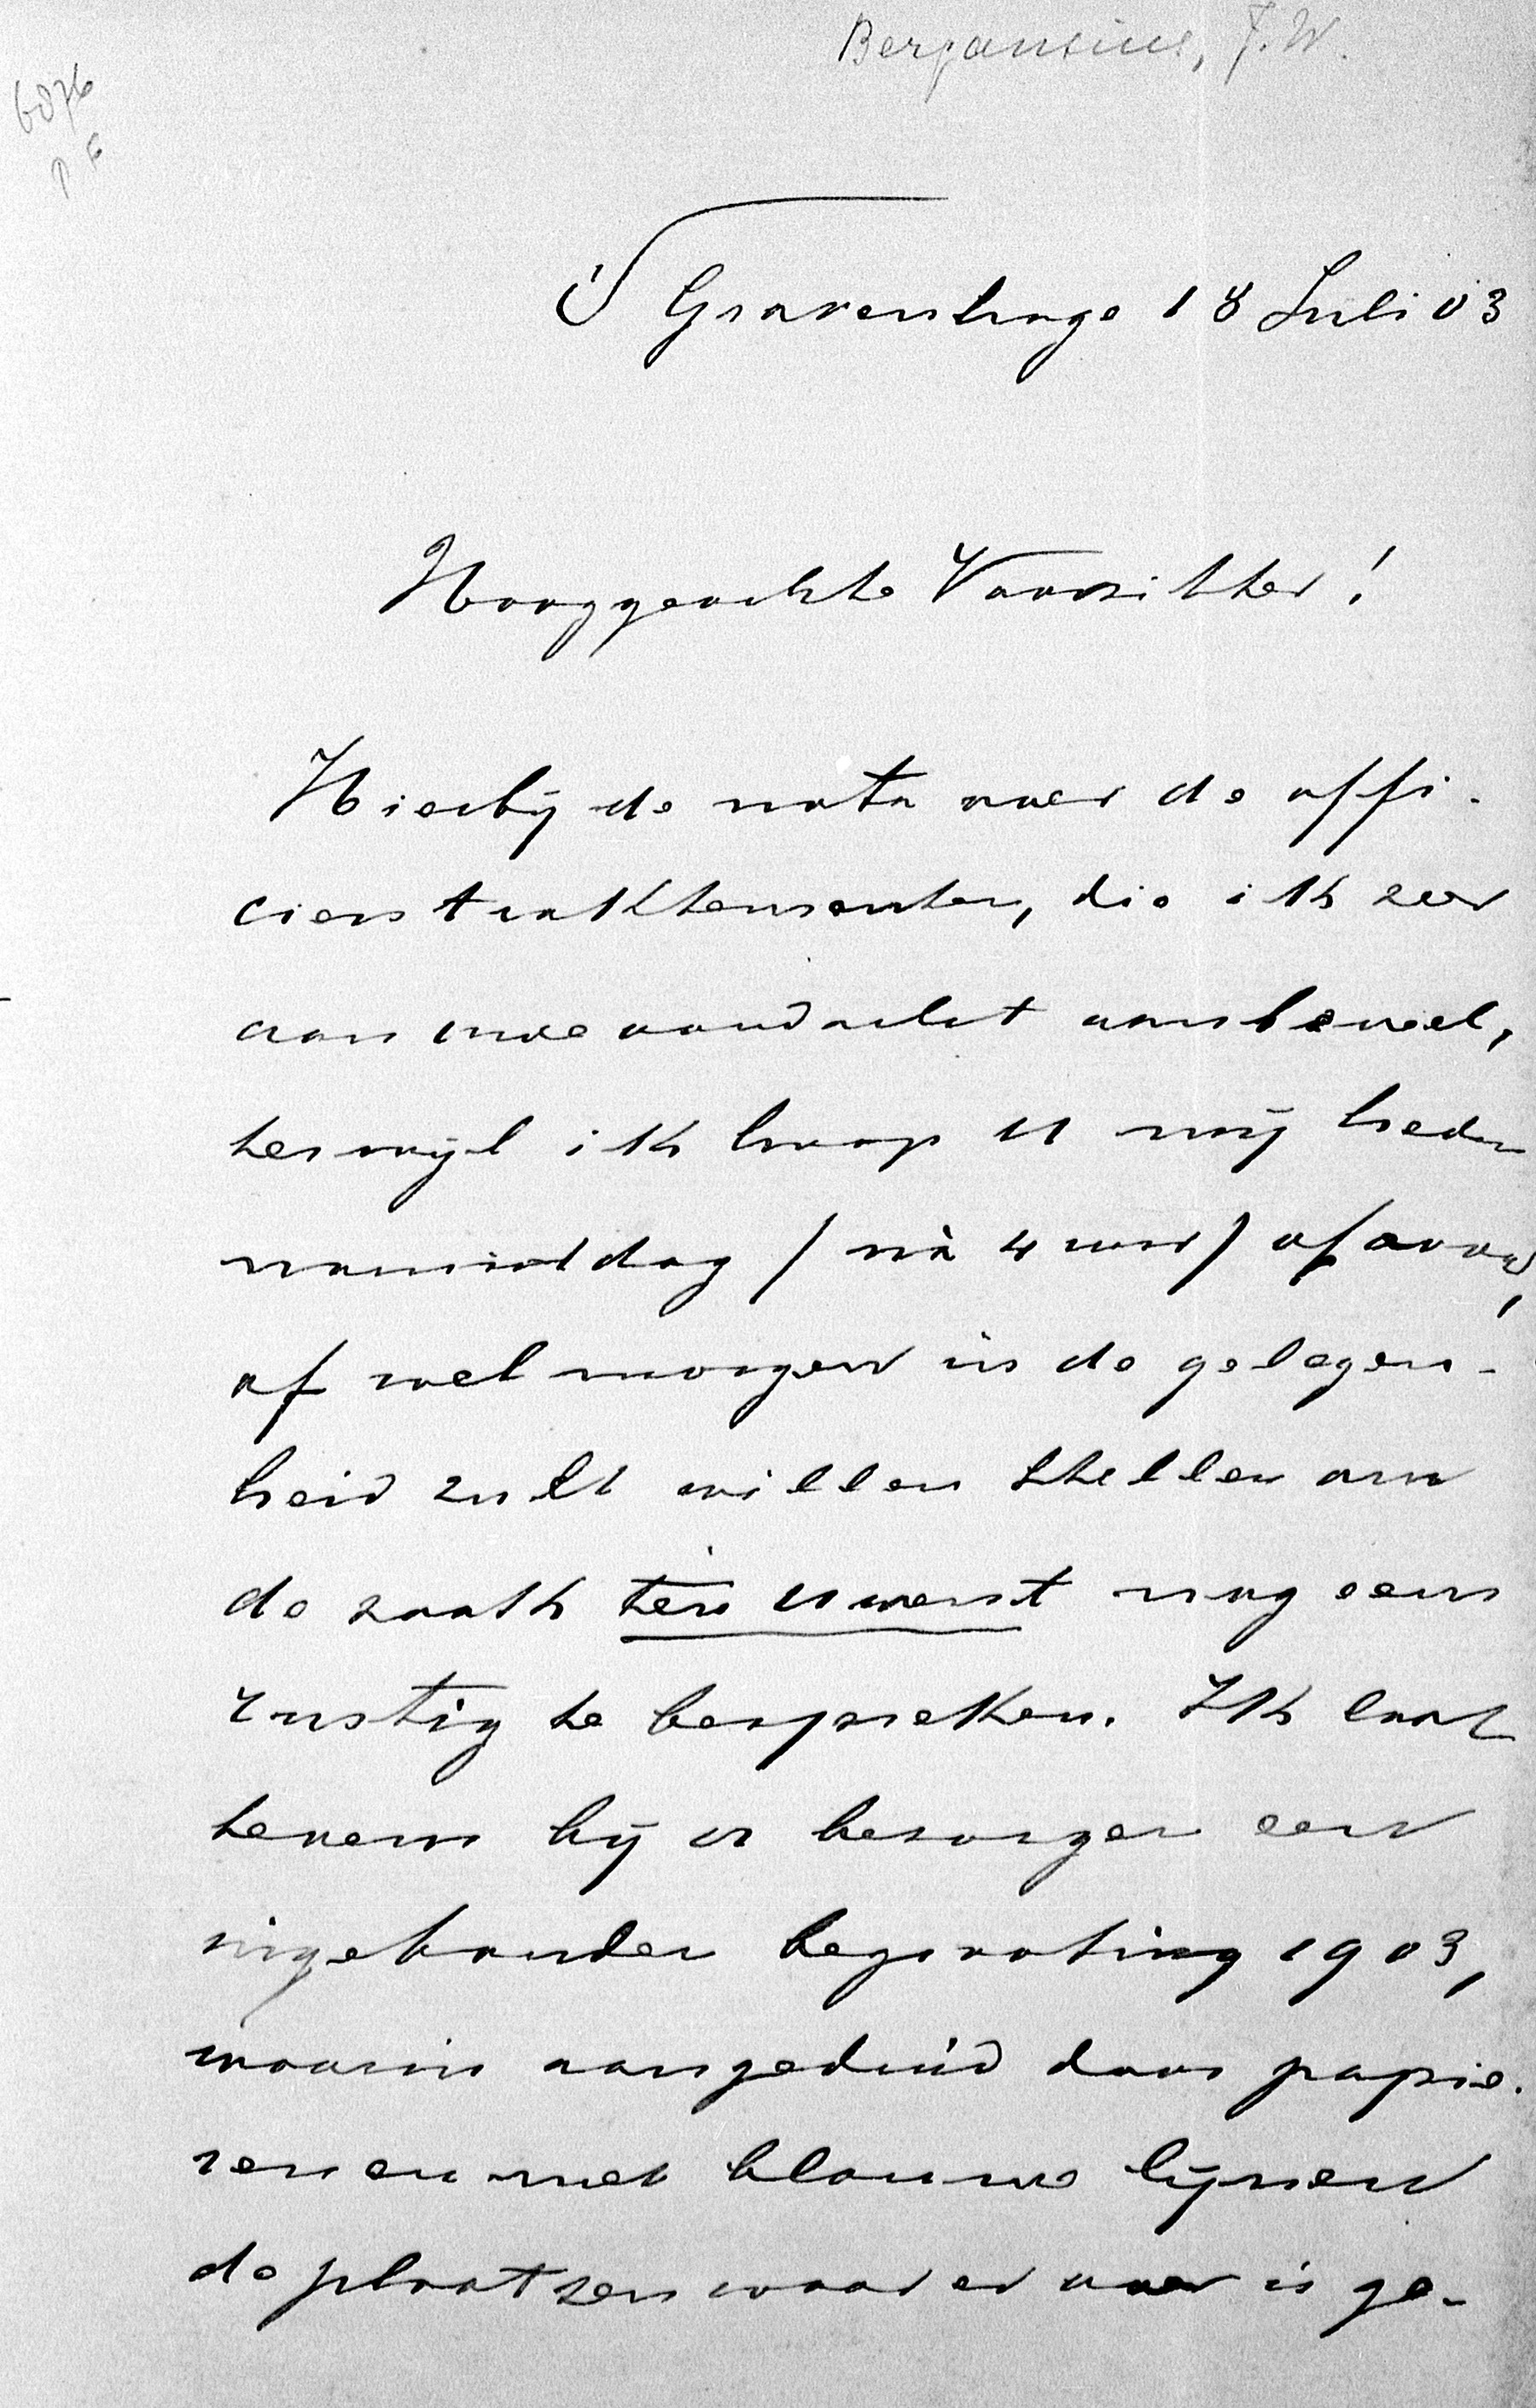 Bergansius, J.W.
6076
'S Gravenhage 18 Juli 03
Hooggeachte Voorzitter!
Hierbij de nota over de offi-
cierstraktementen, die ik zeer
aan uwe aandacht aanbeveel,
terwijl ik hoop U mij heden
namiddag / nà 4 uur / of avond,
of wel morgen in de gelegen-
heid zult willen stellen om
de zaak ten Uwent nog eens
rustig te bespreken. Ik laat
tevens bij U bezorgen een
ingebonden begrooting 1903,
waarin aangeduid door papie-
ren en met blauwe lijnen
de plaatsen waar er over is ge-